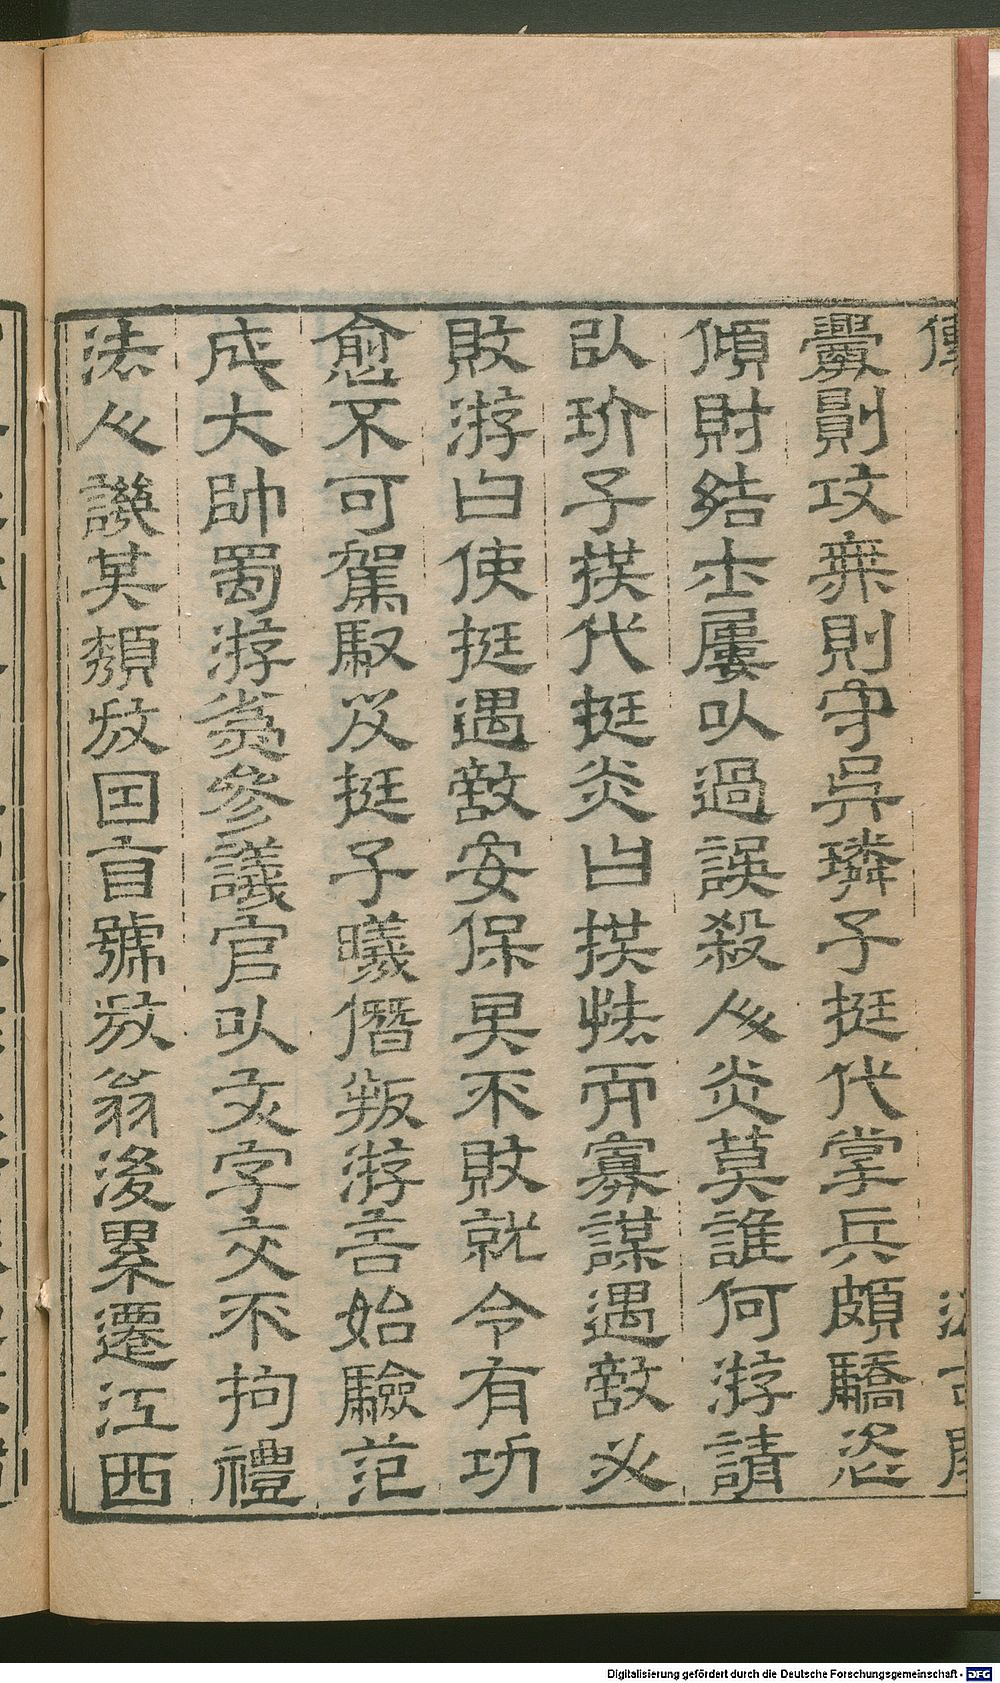 釁則攻無則守吳璘子挺代掌兵頗驕恣
傾財結士屢以過誤殺人炎莫誰何游請
以玠子拱代挺炎曰拱怯而寡謀遇敵必
敗游曰使挺遇敵安保其不敗就令有功
愈不可駕馭及挺子曦僭叛游言始驗范
成大帥蜀游為參議官以文字交不拘禮
法人譏其頹放因自號放翁後累遷江西
Digitalisierung gefördert durch die Deutsche Forschungsgemeinschaft - DFG